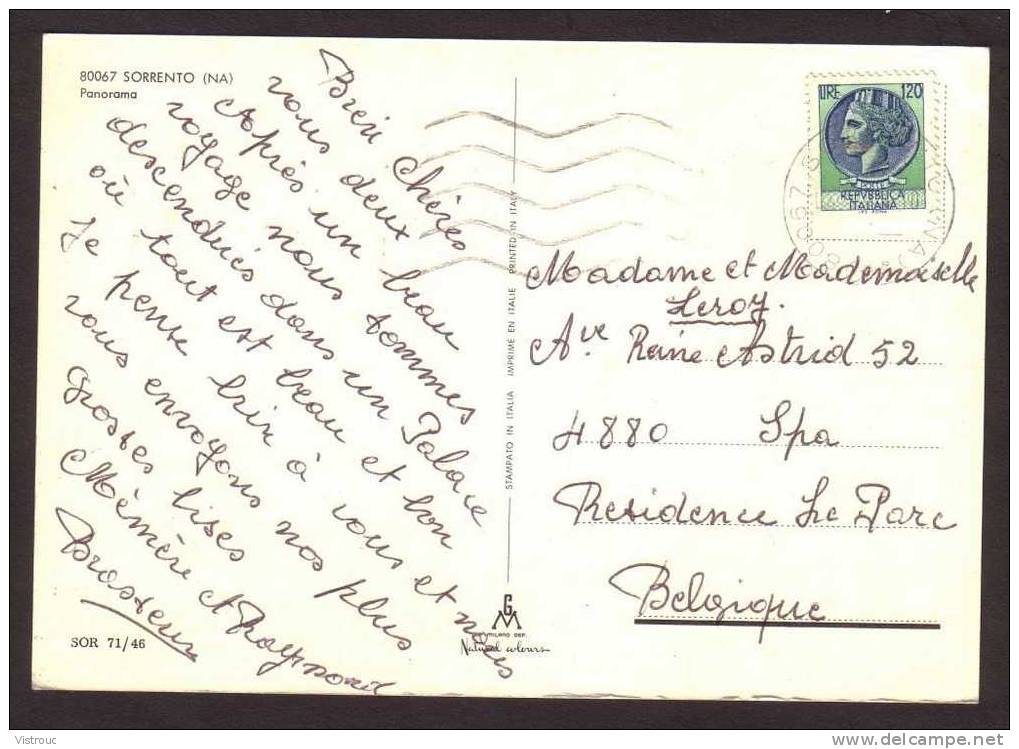 80067 SORRENTO (NA)
Panorama
Bien Chères
vous deux
Après un beau
voyage nous sommes
descendues dans un Palace
où tout est beau et bon
Je pense bien à vous et nous
vous envoyons nos plus
grosses bises
Mèmère et Raymond
Brasseur
SOR 71/46
STAMPATO IN ITALIA IMPRIME EN ITALIE PRINTED IN ITALY
G
M
MILANO DEP.
Natural colours
LIRE 120
POSTE
REPVBBLICA
ITALIANA
Madame et Mademoiselle
Leroy.
Ave Reine Astrid 52
4880 Spa
Residence Le Parc
Belgique
Vistrouc
www.delcampe.net